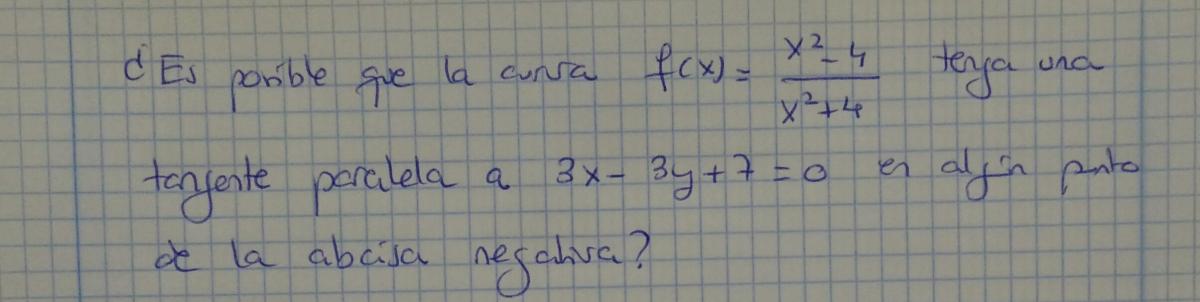 ¿Es posible que la curva f(x) = \frac{x^2-4}{x^2+4} tenga una
tangente paralela a 3x - 3y + 7 = 0 en algún punto
de la abcisa negativa?